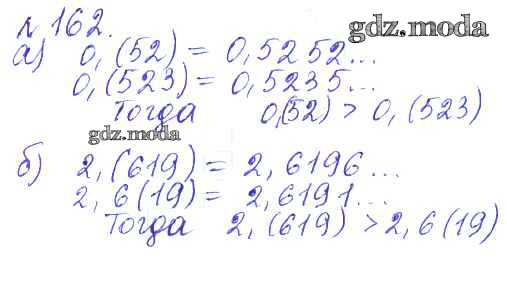 № 162.
gdz.moda
а) 0,(52) = 0,5252...
0,(523) = 0,5235...
Тогда 0,(52) > 0,(523)
gdz.moda
б) 2,(619) = 2,6196...
2,6(19) = 2,6191...
Тогда 2,(619) > 2,6(19)